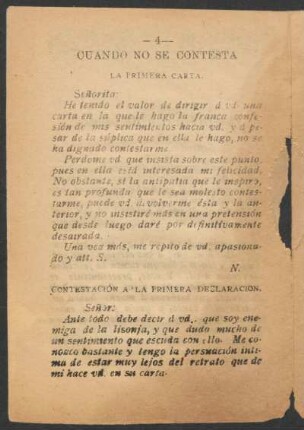 — 4—
CUANDO NO SE CONTESTA
LA PRIMERA CARTA.
Señorita:
He tenido el valor de dirigir á vd una
carta en la que le hago la franca confe-
sión de mis sentimientos hacia vd. y á pe-
sar de la súplica que en ella le hago, no se
ha dignado contestarme.
Perdone vd. que insista sobre este punto,
pues en ella está interesada mi felicidad,
No obstante, si la antipatía que le inspi-
es tan profunda que le sea molesto contes-
tarme, puede vd á volverme ésta y la an-
terior, y no insistiré más en una pretensión
que desde luego daré por definitivamente
desairada.
Una vez más, me repito de vd. apasiona-
do y att. S.
N.
CONTESTACIÓN A LA PRIMERA DECLARACION.
Señor:
Ante todo debe decir á vd,. que soy ene-
miga de la lisonja, y que dudo mucho de
un sentimiento que escuda con ello. Me co-
nozco bastante y tengo la persuación ínti-
ma de estar muy lejos del retrato que de
mi hace vd. en su carta.